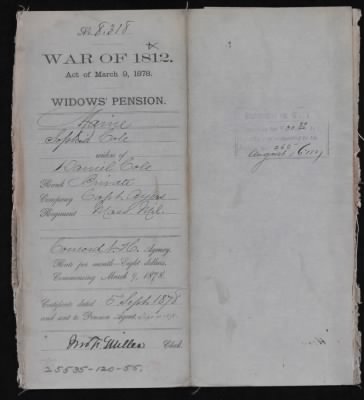 No. 8,318
WAR OF 1812.
Act of March 9, 1878.
WIDOWS' PENSION.
Maine
Sophia Cole
widow of
Daniel Cole
Rank Private
Company Capt. Ayers
Regiment Mass Mil.
Concord N. H. Agency.
Rate per month—Eight dollars,
Commencing March 9, 1878.
Certificate dated 5 Sept. 1878
and sent to Pension Agent.
Jno. F. Miller Clerk.
25535-120-55.
August